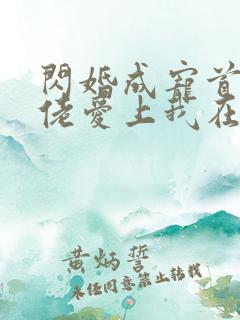 閃婚成寵首
佬愛上我在
黄炳誓
未经同意禁止转载